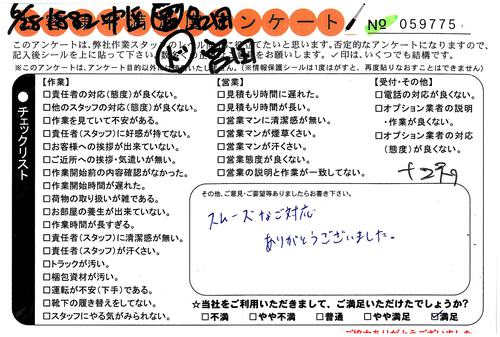 アンケート
№ 059775
このアンケートは、弊社作業スタッフの
たいと思います。否定的なアンケートになりますので、
記入後シールを上に貼って下さい。
をお願いします。✓印は、いくつでも結構です。
※このアンケートは、アンケート目的以外
たしません。(※情報保護シールは1度はがすと、再度貼りなおすことはできません)
チェックリスト
【作業】
□責任者の対応(態度)が良くない。
□他のスタッフの対応(態度)が良くない。
□作業を見ていて不安がある。
□責任者(スタッフ)に好感が持てない。
□お客様への挨拶が出来ていない。
□ご近所への挨拶・気遣いが無い。
□作業開始前の内容確認がなかった。
□作業開始時間が遅れた。
□荷物の取り扱いが雑である。
□お部屋の養生が出来ていない。
□作業時間が長すぎる。
□責任者(スタッフ)に清潔感が無い。
□責任者(スタッフ)が汗くさい。
□トラックが汚い。
□梱包資材が汚い。
□運転が不安(下手)である。
□靴下の履き替えをしてない。
□スタッフにやる気がみられない。
【営業】
□見積もり時間に遅れた。
□見積もり時間が長い。
□営業マンに清潔感が無い。
□営業マンが煙草くさい。
□営業マンが汗くさい。
□営業態度が良くない。
□営業の説明と作業が一致してない。
【受付・その他】
□電話の対応が良くない。
□オプション業者の説明
・作業が良くない。
□オプション業者の対応
(態度)が良くない。
その他、ご意見・ご要望等ありましたらお書き下さい。
スムーズなご対応
ありがとうございました。
☆当社をご利用いただきまして、ご満足いただけたでしょうか?
□不満 □やや不満 □普通 □やや満足 ☑満足
ご協力ありがとうございました